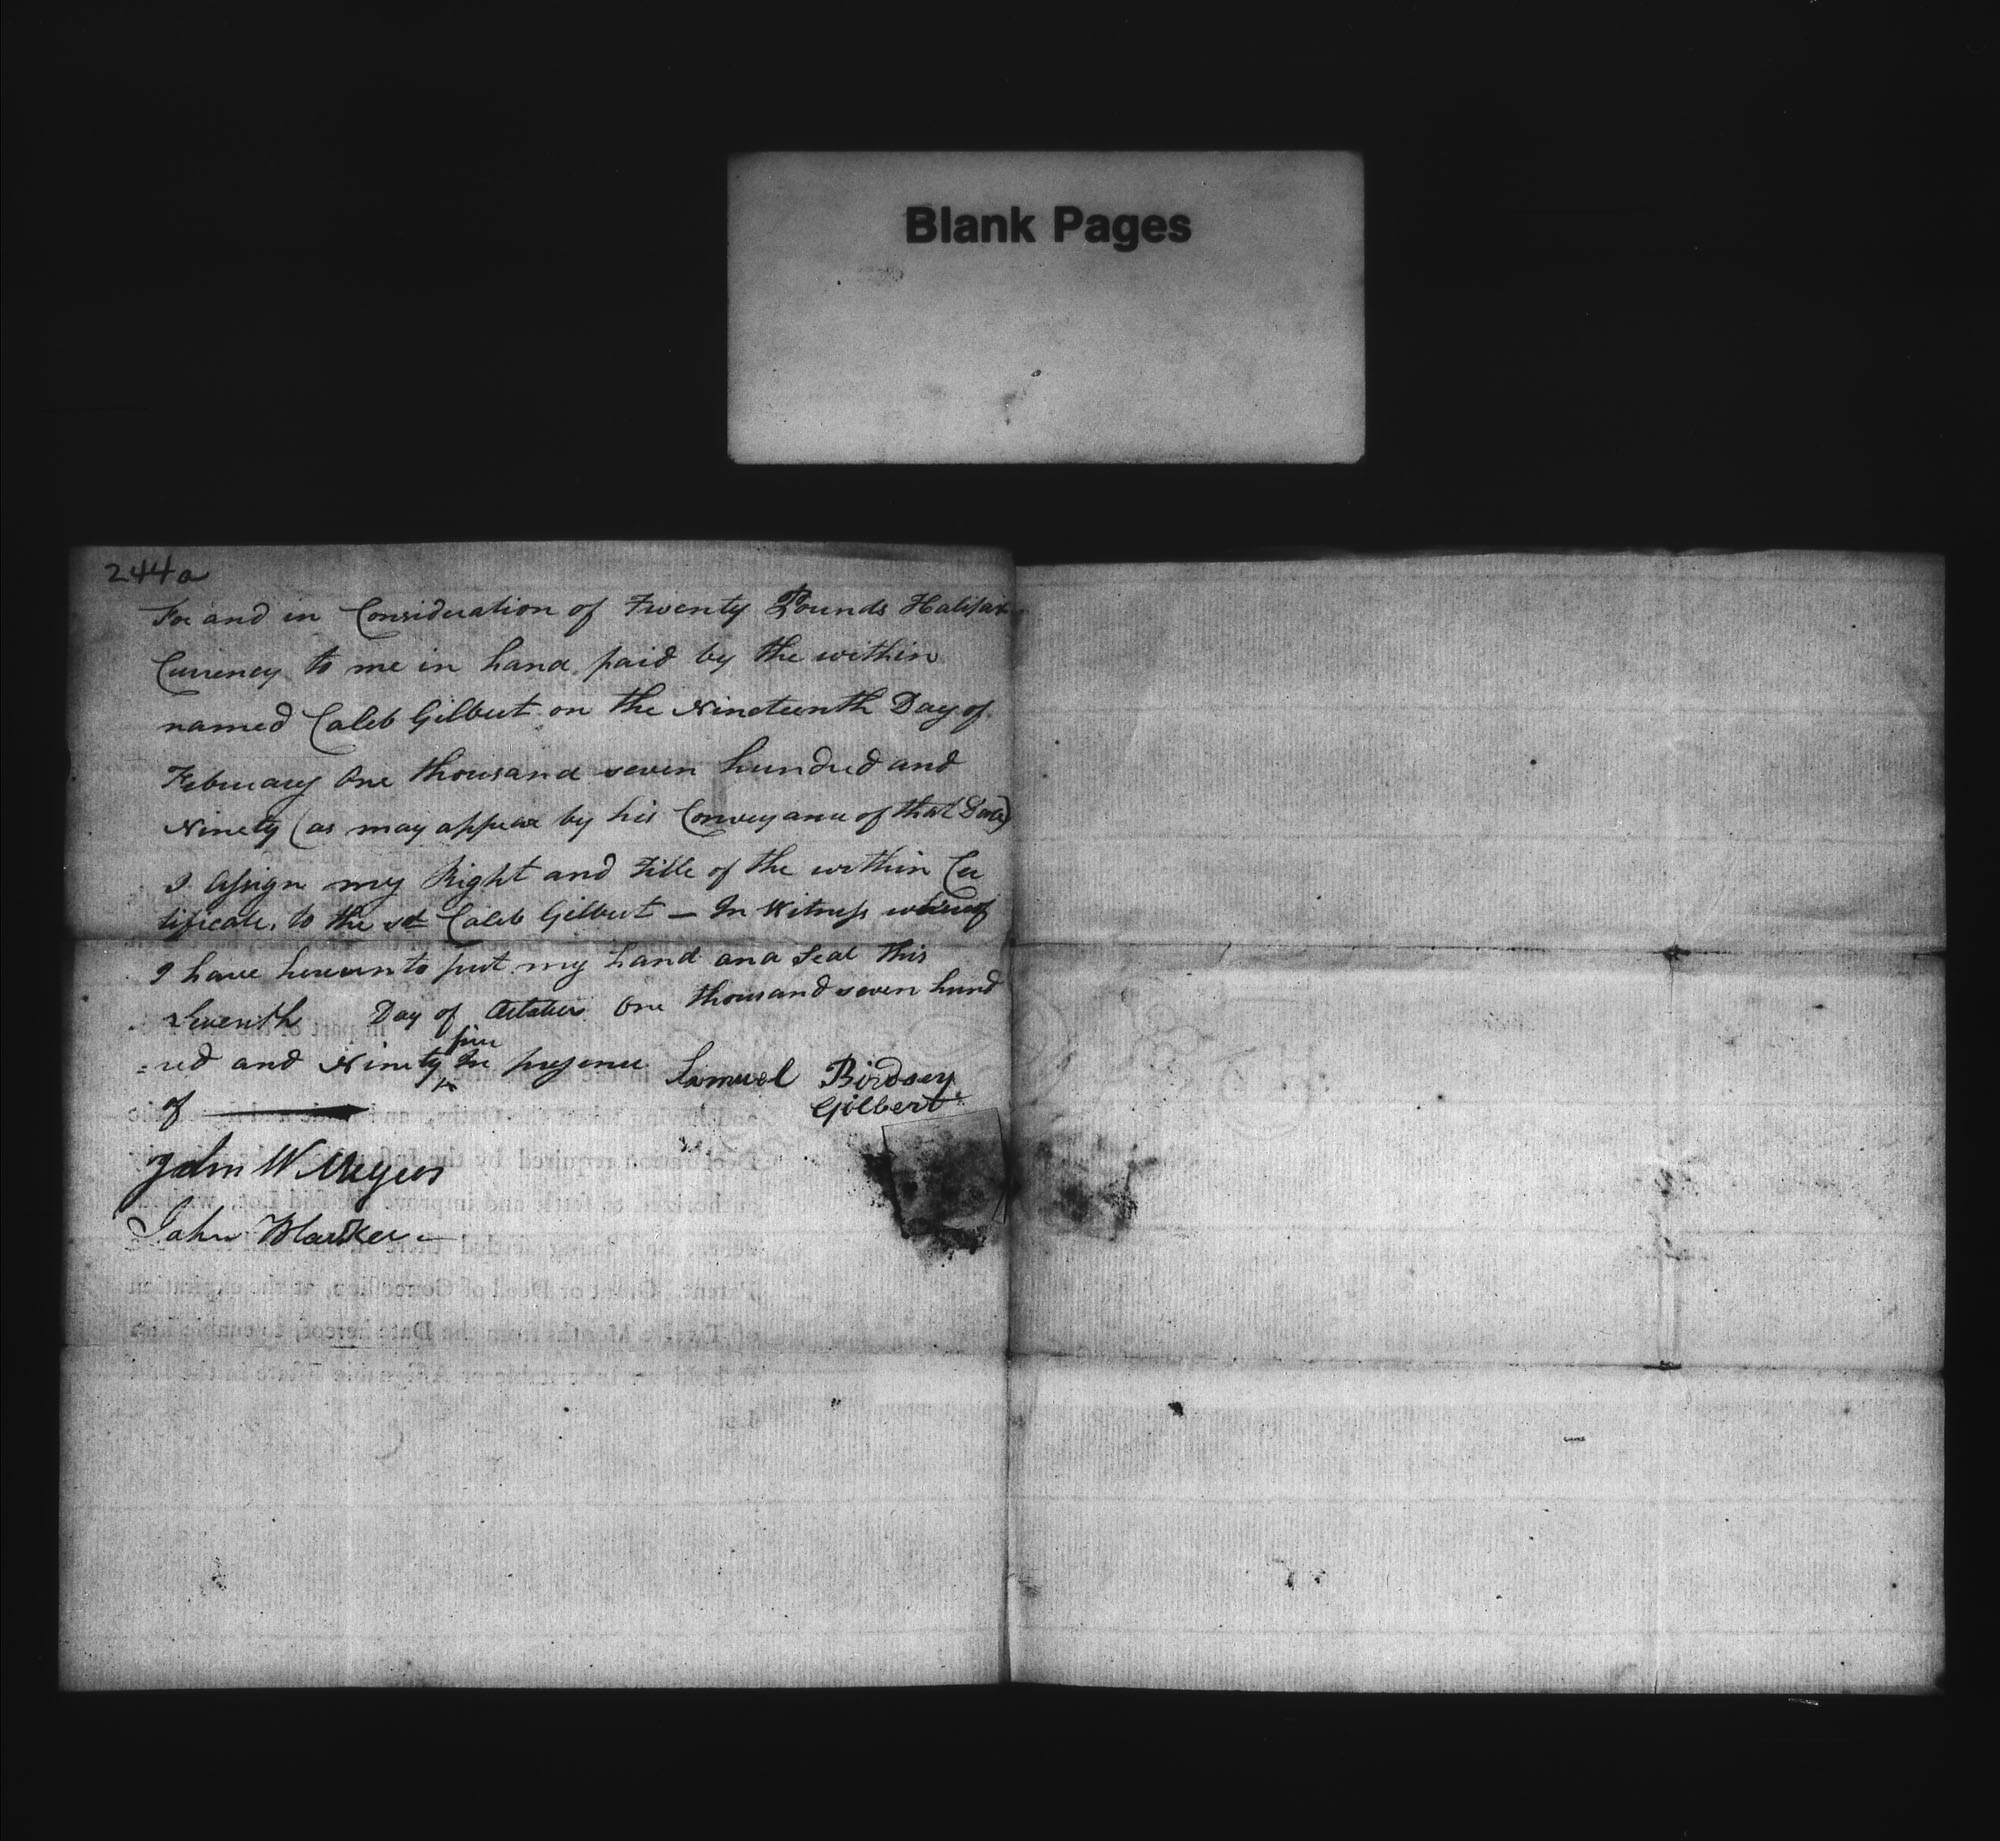 Blank Pages
244a
For and in Consideration of Twenty Pounds Halifax
Currency to me in hand paid by the within
named Caleb Gilbert on the Nineteenth Day of
February One thousand seven hundred and
Ninety (as may appear by his Conveyance of that Date)
I Assign my Right and Title of the within Cer
tificate, to the sd Caleb Gilbert — In Witness whereof
I have hereunto put my hand and Seal this
Seventh Day of October One thousand seven hund
=red and Ninety five In presence
of
Samuel Birdsey
Gilbert
John W Meyers
John